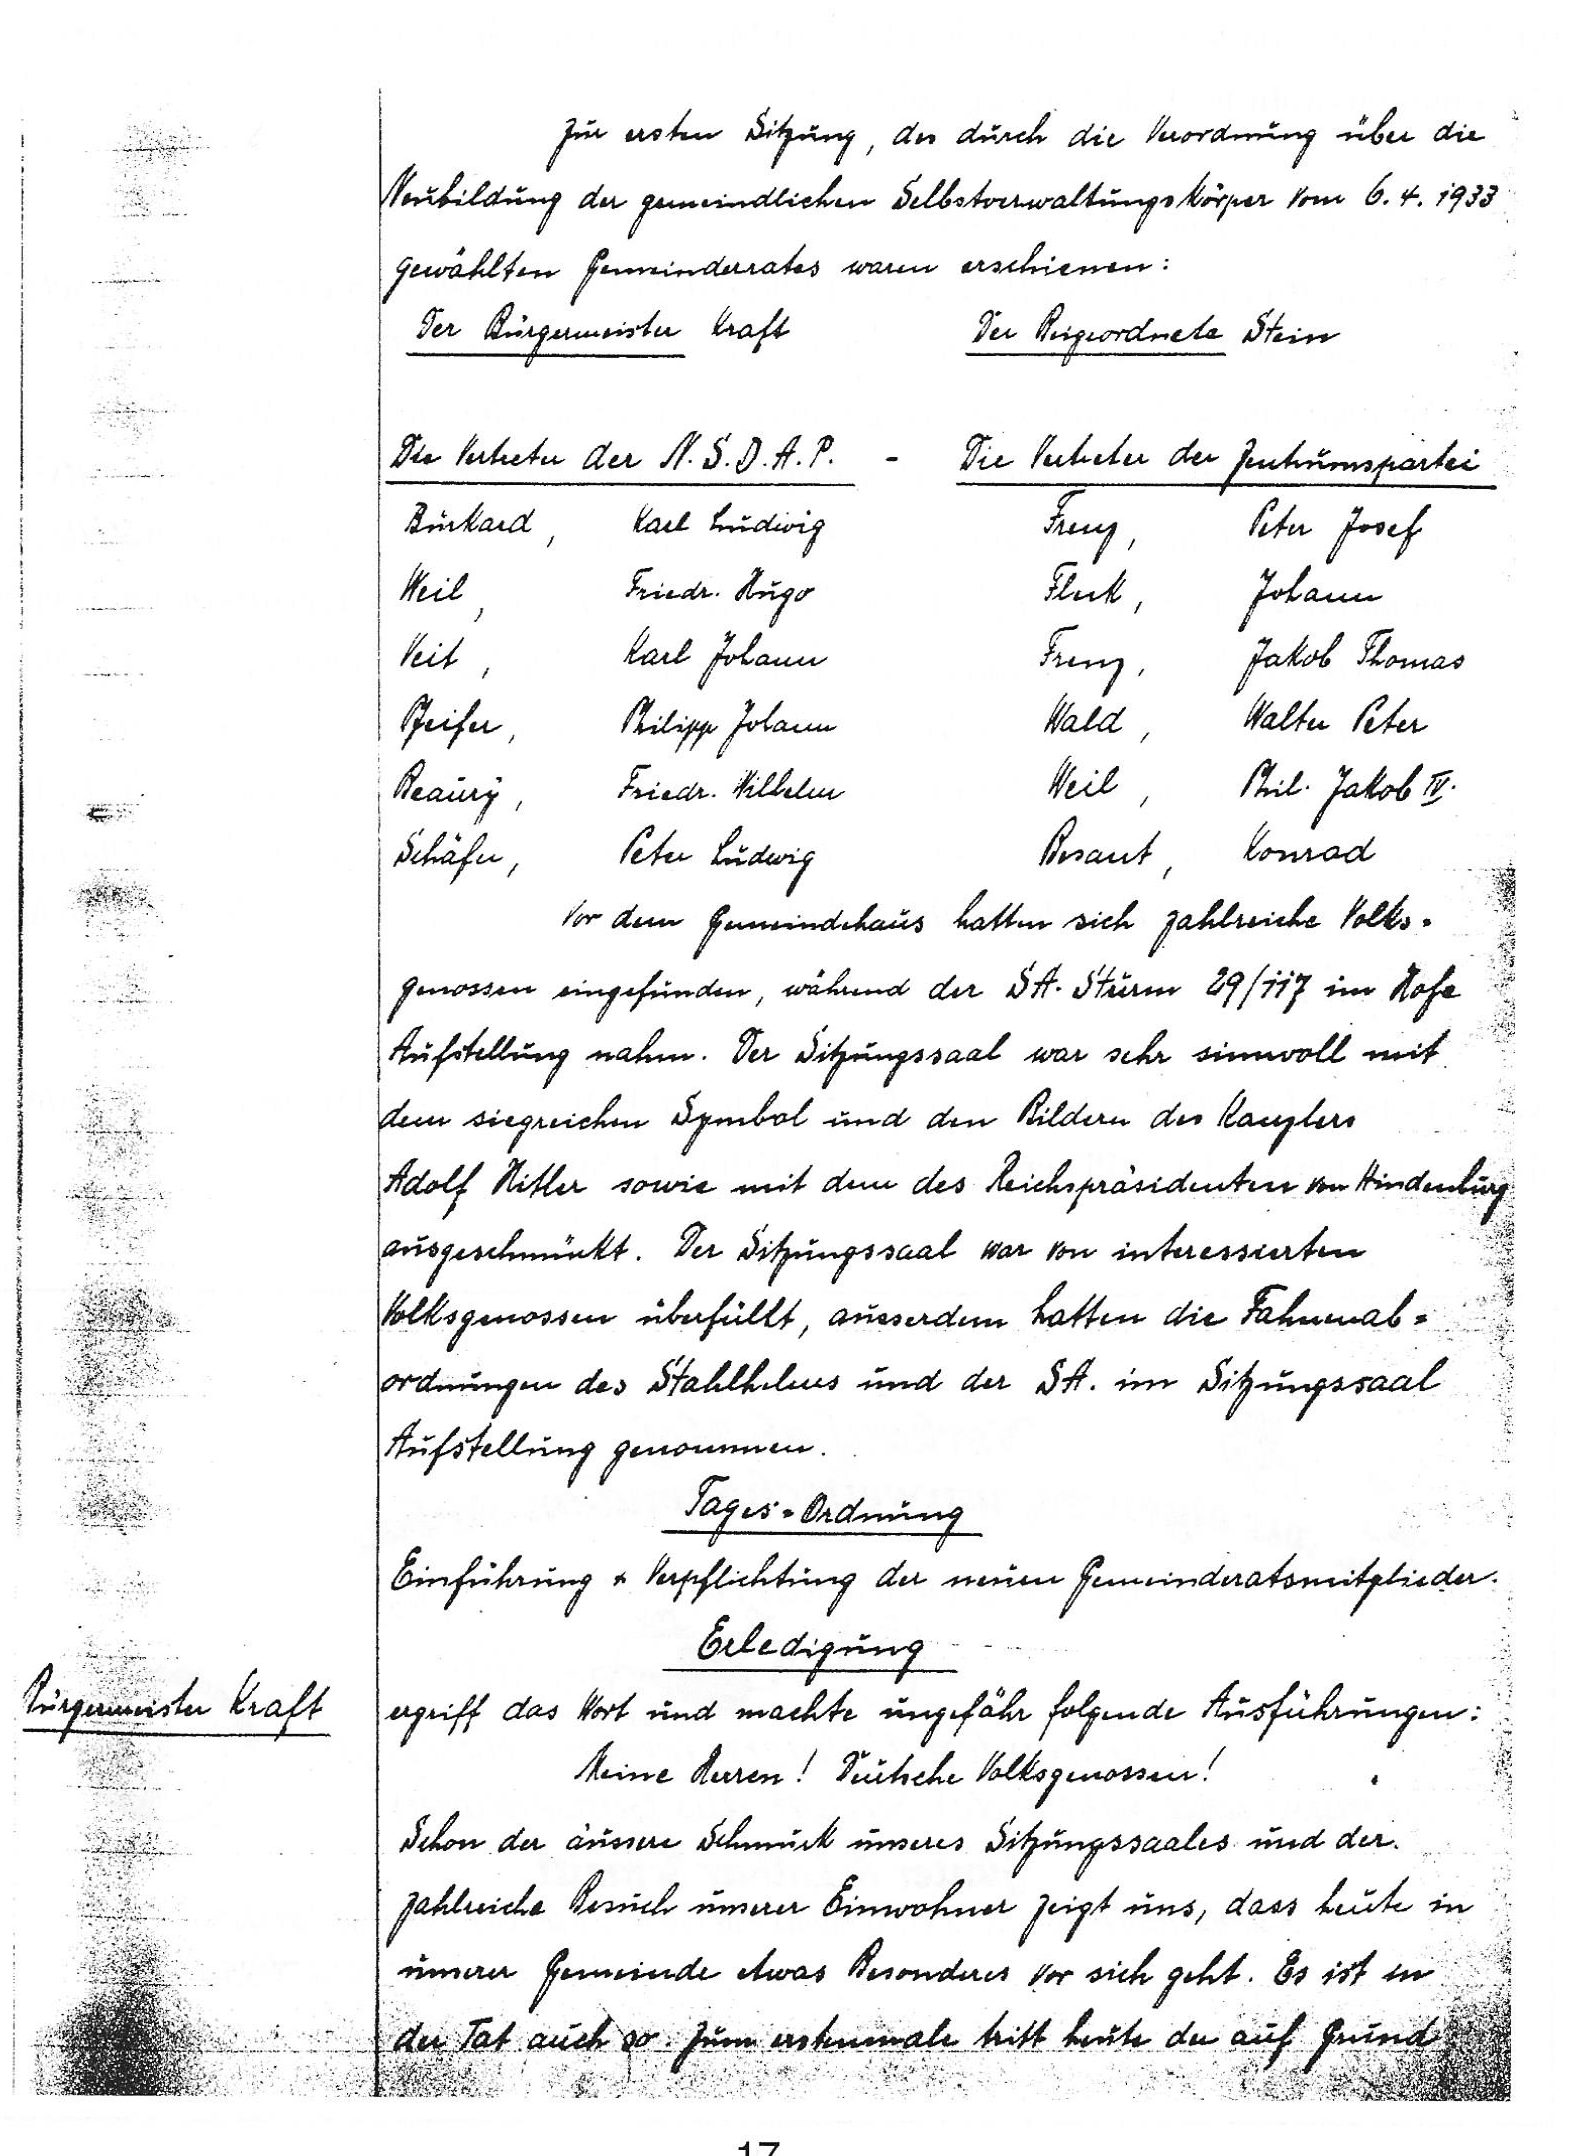 Zur ersten Sitzung, des durch die Verordnung über die
Neubildung der gemeindlichen Selbstverwaltungskörper vom 6. 4. 1933
gewählten Gemeinderates waren erschienen:
Der Bürgermeister Kraft Der Beigeordnete Stein
Die Vertreter der N.S.D.A.P. - Die Vertreter der Zentrumspartei
Burkard, Karl Ludwig Frenz, Peter Josef
Weil, Friedr. Hugo Fleck, Johann
Veit, Karl Johann Frenz, Jakob Thomas
Pfeifer, Philipp Johann Wald, Walter Peter
Beaury, Friedr. Wilhelm Weil, Phil. Jakob IV.
Schäfer, Peter Ludwig Besant, Konrad
Vor dem Gemeindehaus hatten sich zahlreiche Volks=
genossen eingefunden, während der SA. Sturm 29/117 im Hofe
Aufstellung nahm. Der Sitzungssaal war sehr sinnvoll mit
dem siegreichen Symbol und den Bildern des Kanzlers
Adolf Hitler sowie mit dem des Reichspräsidenten von Hindenburg
ausgeschmückt. Der Sitzungssaal war von interessierten
Volksgenossen überfüllt, ausserdem hatten die Fahnenab=
ordnungen des Stahlhelms und der SA. im Sitzungssaal
Aufstellung genommen.
Tages=Ordnung
Einführung & Verpflichtung der neuen Gemeinderatsmitglieder.
Erledigung
Bürgermeister Kraft ergriff das Wort und machte ungefähr folgende Ausführungen:
Meine Herren! Deutsche Volksgenossen!
Schon der äussere Schmuck unseres Sitzungssaales und der
zahlreiche Besuch unserer Einwohner zeigt uns, dass heute in
unserer Gemeinde etwas Besonderes vor sich geht. Es ist in
der Tat auch so. Zum erstenmale tritt heute der auf Grund
17